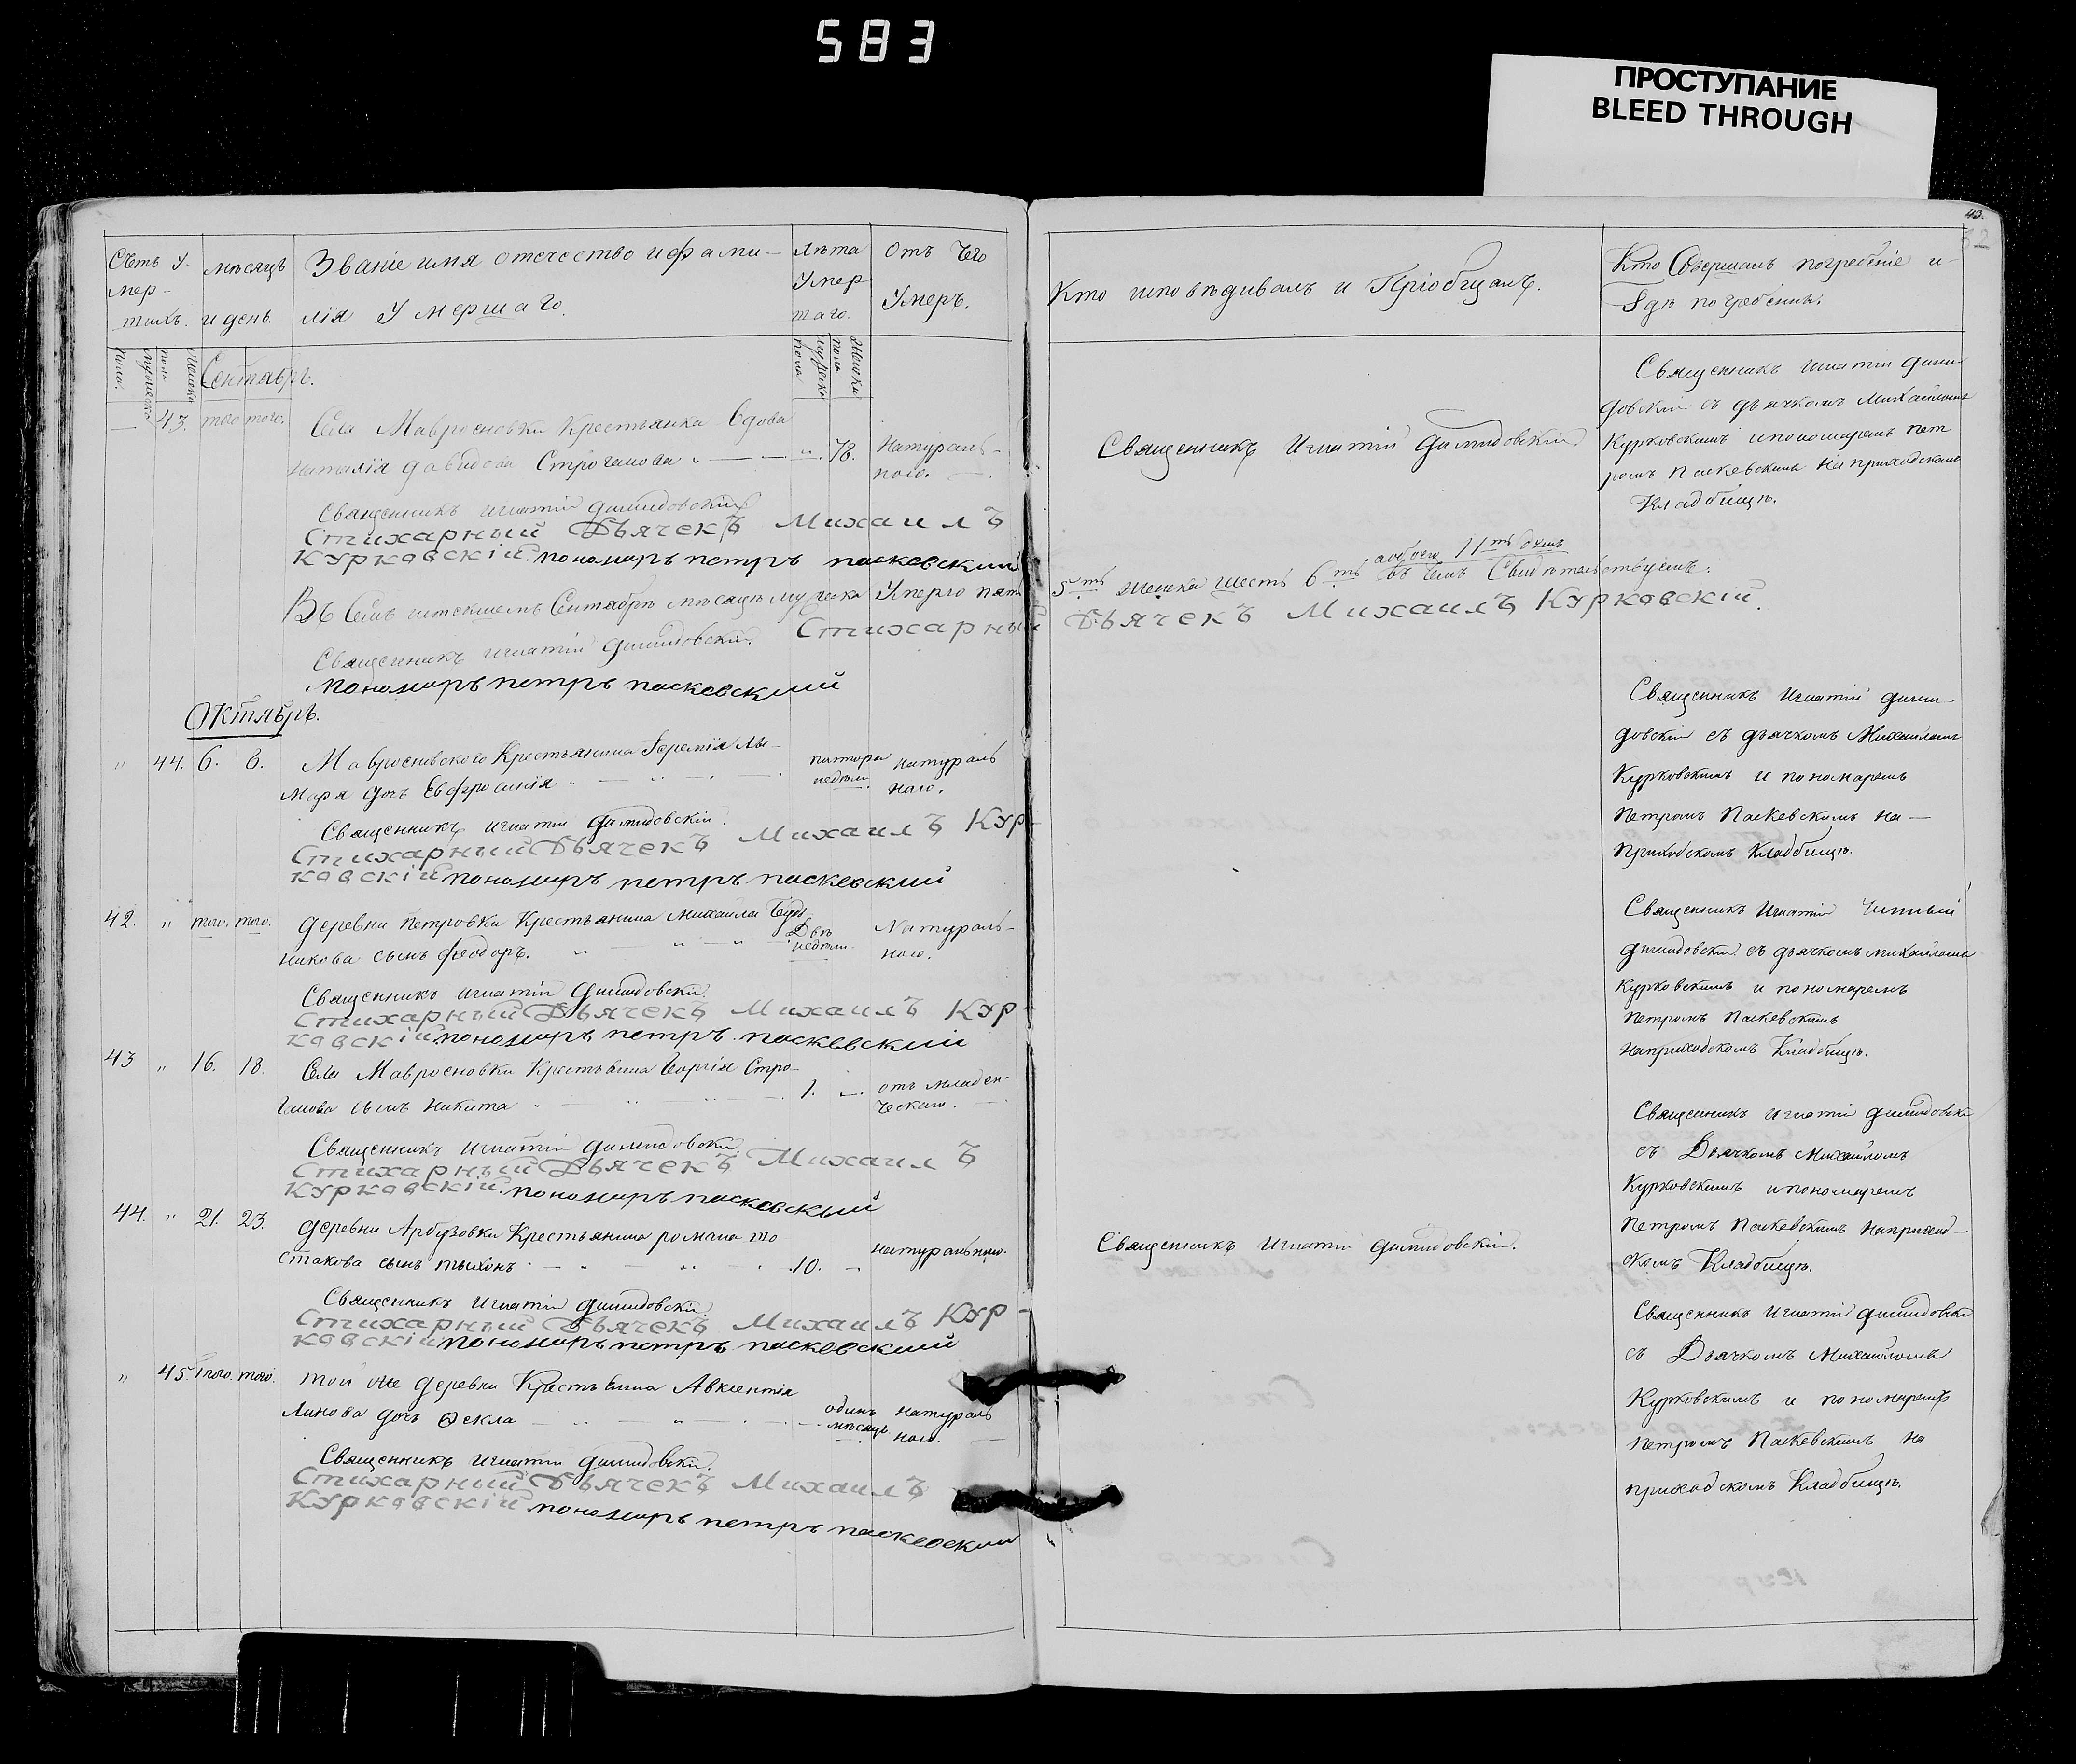 583
ПРОСТУПАНИЕ
BLEED THROUGH
43.
Счетъ у-
мер-
шихъ.
мѣсяцъ
и день.
Званіе имя отечество и фами-
лія Умершаго.
Лѣта
Умер
шаго.
Отъ Чего
Умеръ.
Кто исповѣдивалъ и Пріобщалъ.
Кто Совершалъ погребеніе и
Гдѣ погребенны.
Мужеска
пола
Женска
пола
мужеска
пола
Женска
пола
Сентябрь.
— 43. того того. Села Мавросновки Крестьянка вдова
Наталія Давидова Строганова — — — „. 78. Натураль-
ного.
Священникъ Игнатій Димидовскій
Священникъ Игнатій Дими
довскій съ дьячкомъ Михаиломъ
Курковскимъ и пономаремъ Пет
ромъ Паскевскимъ на приходскомъ
Кладбищѣ.
Священникъ Игнатій Димидовскій
Стихарный Дьячекъ Михаилъ
Курковскій. пономарь петръ паскевский
Въ Семъ истекшемъ Сентябрѣ мѣсяцѣ мужеска Умерло пять
5ть женска шесть 6ть а обоего 11ть душъ въ чемъ Свидѣтельствуемъ.
Священникъ Игнатій Димидовскій. Стихарный Дьячекъ Михаилъ Курковскій.
пономарь петръ паскевский
Октябрь.
„ 44. 6. 8. Мавросновского Крестьянина Іеремія Лы-
маря дочь Евфросинія
полтора
недѣли.
натураль
наго.
Священникъ Игнатій Дими
довскій съ дьячкомъ Михаиломъ
Курковскимъ и пономаремъ
Петромъ Паскевскимъ на —
Приходскомъ Кладбищѣ.
Священникъ Игнатій Димидовскій.
Стихарный Дьячекъ Михаилъ Кур-
ковскій пономарь петръ паскевский
42. „ того. того. деревни Петровки Крестьянина Михаила Буд
никова сынъ Феодоръ.
Двѣ
недѣли.
Натураль-
наго.
Священникъ Игнатій
Димидовскій съ дьячкомъ Михаиломъ
Курковскимъ и пономаремъ
Петромъ Паскевскимъ
на приходскомъ Кладбищѣ.
Священникъ Игнатій Димидовскій.
Стихарный Дьячекъ Михаилъ Кур-
ковскій пономарь петръ паскевский
43 „ 16. 18. Села Мавросновки Крестьянина Георгія Стро-
ганова сынъ Никита
1. —.
отъ младен-
ческаго.
Священникъ Игнатій Димидовскій
съ Дьячкомъ Михаиломъ
Курковскимъ и пономаремъ
Петромъ Паскевскимъ на приход-
скомъ Кладбищѣ.
Священникъ Игнатій Димидовскій.
Стихарный Дьячекъ Михаилъ
Курковскій. пономарь паскевский
44. „ 21. 23. деревни Арбузовки Крестьянина романа то
стакова сынъ тихонъ
.10. —
натуральнаго.
Священникъ Игнатій Димидовскій.
Священникъ Игнатій Димидовскій
съ Дьячкомъ Михаиломъ
Курковскимъ и пономаремъ
Петромъ Паскевскимъ на
приходскомъ Кладбищѣ.
Священникъ Игнатій Димидовскій.
Стихарный Дьячекъ Михаилъ Кур-
ковскій пономарь петръ паскевский
„ 45. того. того. той же деревни Крестьянина Авксентія
Линова дочь Ѳекла
одинъ
мѣсяцъ.
натураль
наго.
Священникъ Игнатій Димидовскій.
Стихарный Дьячекъ Михаилъ
Курковскій пономарь петръ паскевский